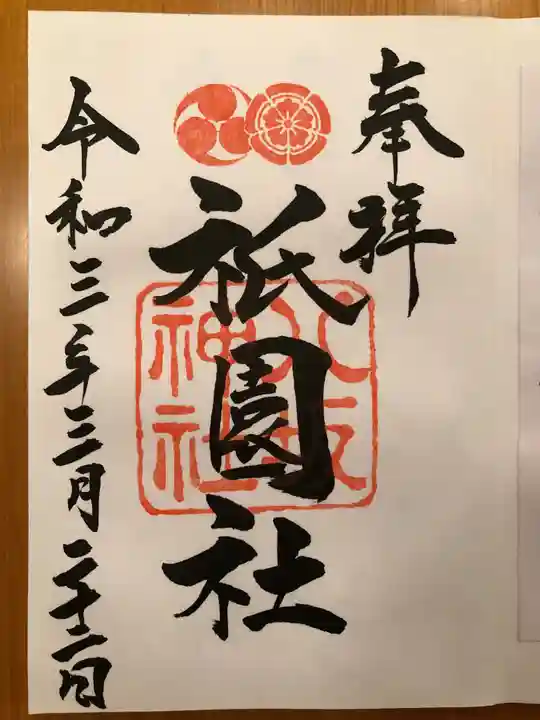 奉拝
祇園社
八坂神社
令和三年三月二十二日